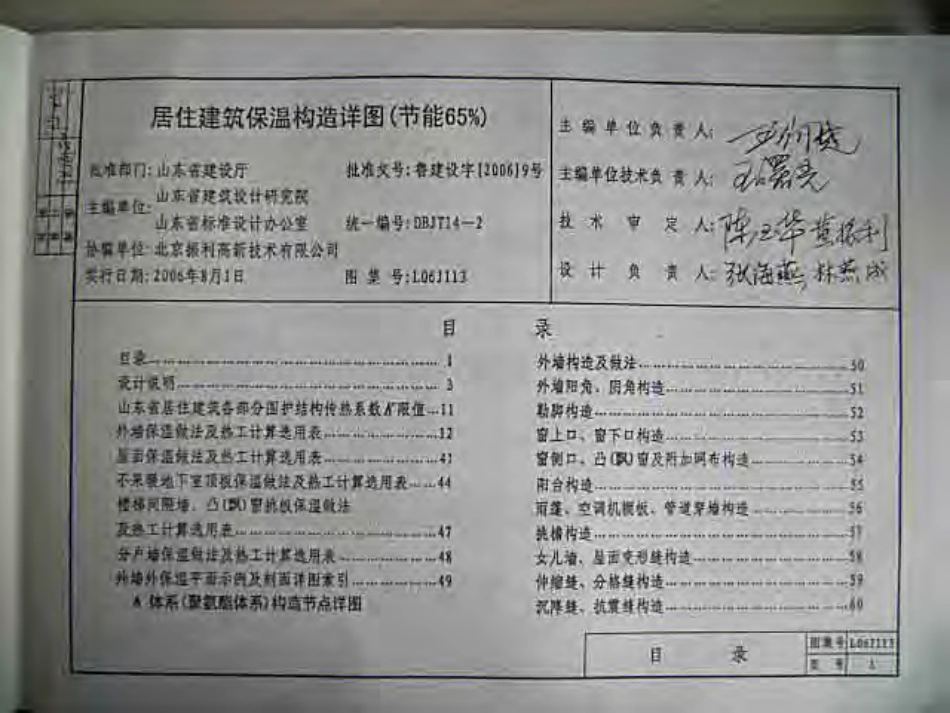 居住建筑保温构造详图(节能65%)
批准部门:山东省建设厅 批准文号:鲁建设字[2006]9号
主编单位:山东省建筑设计研究院
山东省标准设计办公室 统一编号:DBJT14-2
协编单位:北京振利高新技术有限公司
实行日期:2006年8月1日 图集号:L06J113
主编单位负责人:
主编单位技术负责人:
技术审定人:
设计负责人: 张海燕
目 录
目录 1
设计说明 3
山东省居住建筑各部分围护结构传热系数K限值 11
外墙保温做法及热工计算选用表 12
屋面保温做法及热工计算选用表 41
不采暖地下室顶板保温做法及热工计算选用表 44
楼梯间隔墙、凸(飘)窗挑板保温做法
及热工计算选用表 47
分户墙保温做法及热工计算选用表 48
外墙外保温平面示例及剖面详图索引 49
A 体系(聚氨酯体系)构造节点详图
外墙构造及做法 50
外墙阳角、阴角构造 51
勒脚构造 52
窗上口、窗下口构造 53
窗侧口、凸(飘)窗及附加网布构造 54
阳台构造 55
雨蓬、空调机搁板、管道穿墙构造 56
挑檐构造 57
女儿墙、屋面变形缝构造 58
伸缩缝、分格缝构造 59
沉降缝、抗震缝构造 60
目 录
图集号 L06J113
页 号 1